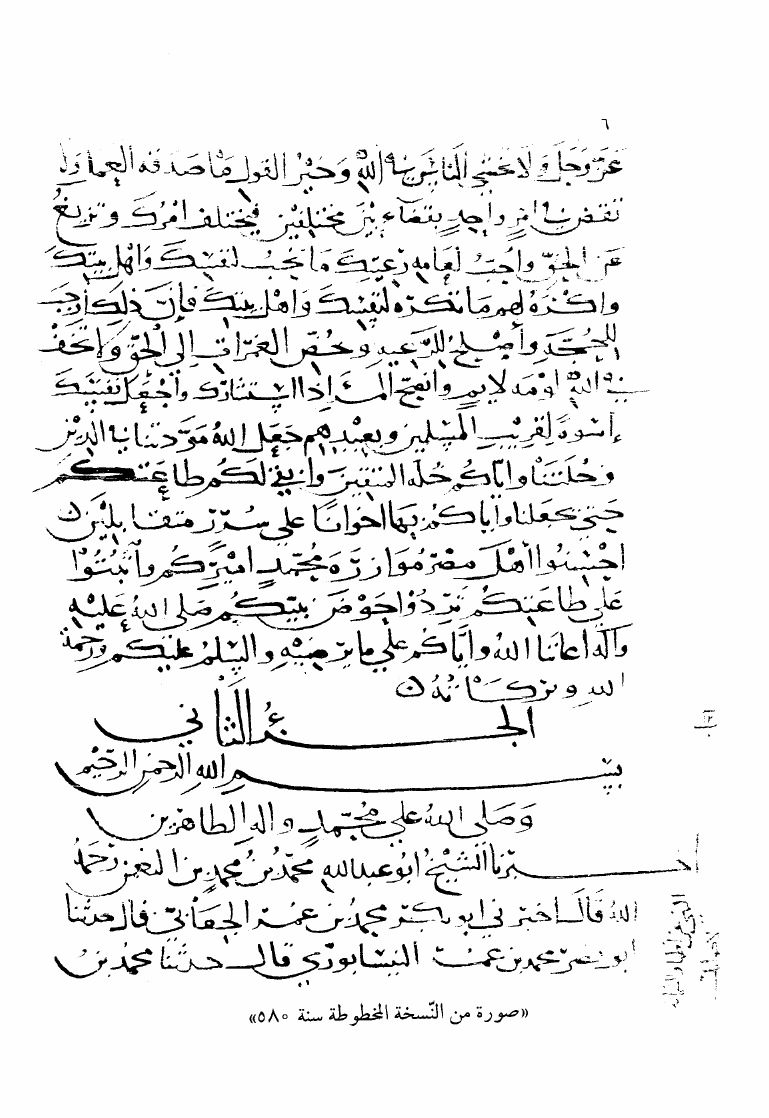 ٦
عز وجل ولا تخش الناس في الله وخير القول ما صدقه العمل ولا
تقض في امر واحد بقضاءين مختلفين فيختلف امرك وتزيغ
عن الحق واحب لعامه رعيتك ما تحب لنفسك واهل بيتك
واكره لهم ما تكره لنفسك واهل بيتك فان ذلك اوجب
للحجه واصلح للرعيه وخض الغمرات الى الحق ولا تخف
في الله لومه لايم وانصح المرء اذا استشارك واجعل نفسك
اسوة لقريب المسلمين وبعيدهم جعل الله مودتنا في الدين
وخلتنا واياكم خله المتقين وابقى لكم طاعتكم
حتى يجعلنا واياكم بها اخوانا على سرر متقابلين
احسنوا اهل مصر موازرة محمد اميركم واثبتوا
على طاعتكم تردوا حوض نبيكم صلى الله عليه
وآله اعاننا الله واياكم على ما يرضيه والسلم عليكم ورحمة
الله وبركاته
الجزء الثاني
بسم الله الرحمن الرحيم
وصلى الله على محمد واله الطاهرين
اخبرنا الشيخ ابو عبدالله محمد بن محمد بن النعمن رحمه
الله قال اخبرني ابو بكر محمد بن عمر الجعابي قال حدثنا
ابو نصر محمد بن عمر النيسابوري قال حدثنا محمد بن
«صورة من النّسخة المخطوطة سنة ٥٨٠»